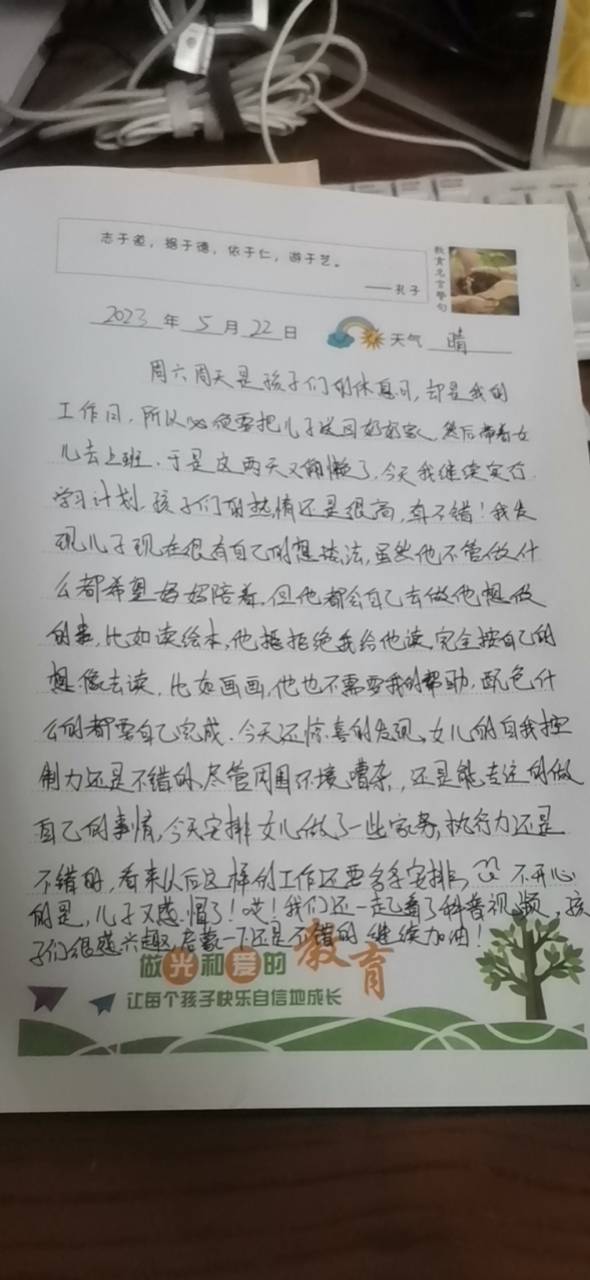 志于道，据于德，依于仁，游于艺。
——孔子
教育名言警句
2023 年 5 月 22 日 天气 晴
周六周天是孩子们的休息日，却是我的
工作日，所以必须要把儿子送回奶奶家，然后带着女
儿去上班，于是这两天又偷懒了，今天我继续实行
学习计划，孩子们的热情还是很高，真不错！我发
现儿子现在很有自己的想法，虽然他不管做什
么都希望妈妈陪着，但他都会自己去做他想做
的事，比如读绘本，他拒绝我给他读，完全按自己的
想像去读，比如画画，他也不需要我的帮助，配色什
么的都要自己完成。今天还惊喜的发现，女儿的自我控
制力还是不错的，尽管周围环境嘈杂，还是能专注的做
自己的事情，今天安排女儿做了一些家务，执行力还是
不错的，看来以后这样的工作还要多多安排，不开心
的是，儿子又感冒了！哎！我们还一起看了科普视频，孩
子们很感兴趣，启蒙一下还是不错的 继续加油！
做光和爱的教育
让每个孩子快乐自信地成长